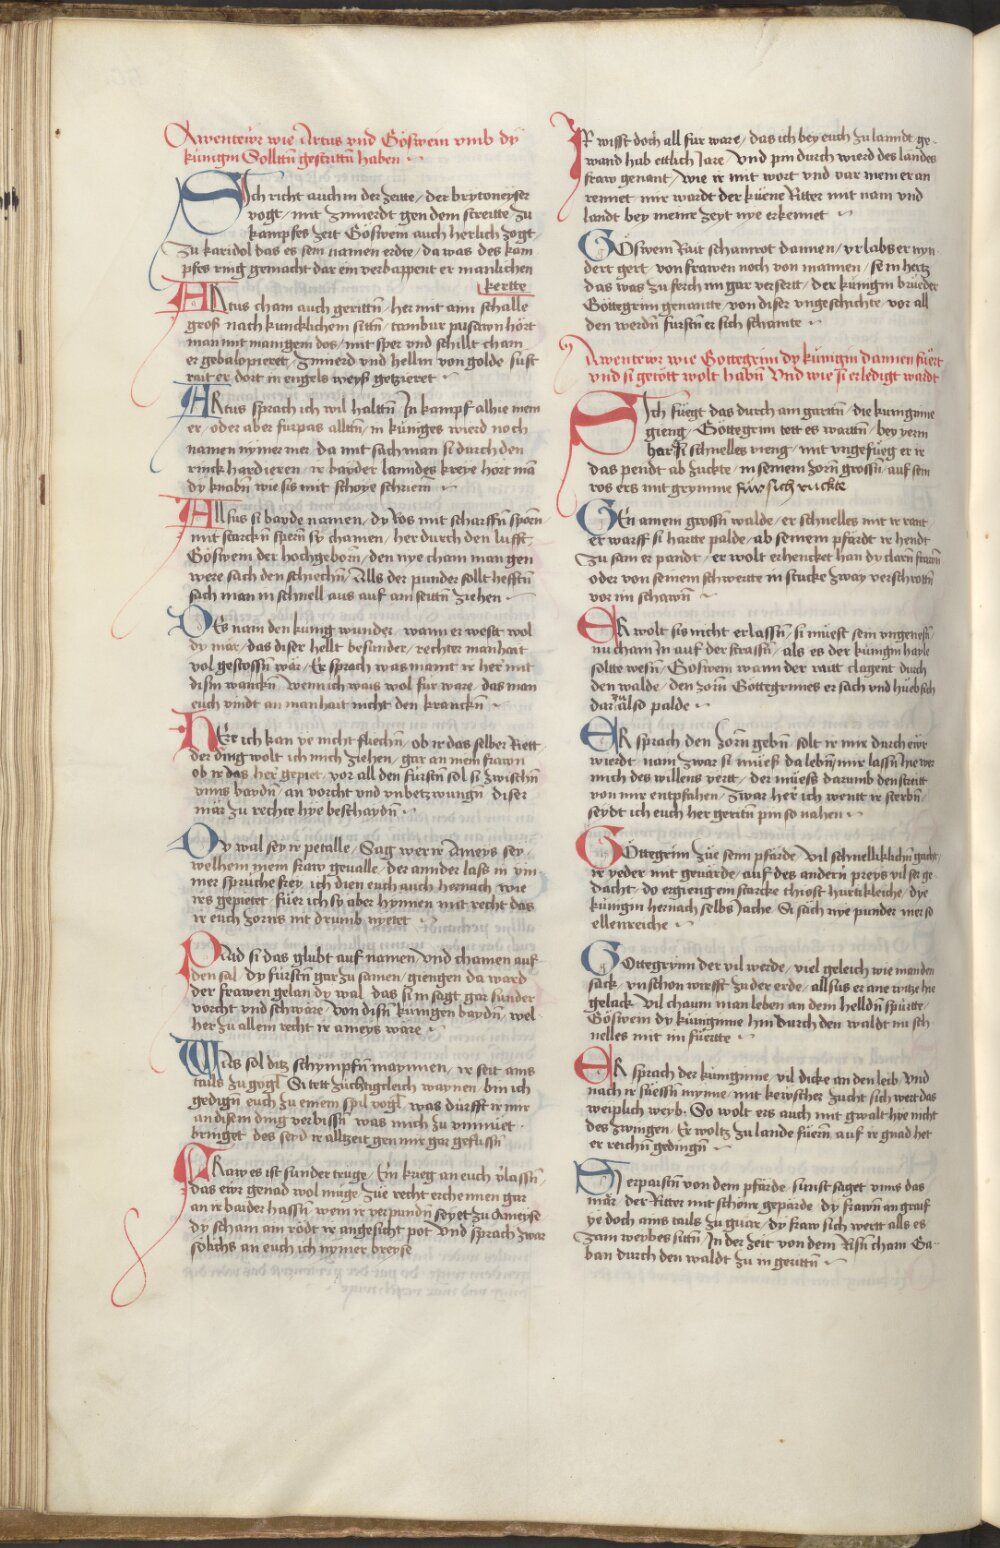 Awenteẅr wie Artus vnd Göswein vmb dy
künigin Solltn̄ gestrittn̄ haben
Sich richt auch in der zeitte / der brytoneyser
vogt / mit zimierdt gen dem streitte zu
kampfes zeit Göswein auch herlich zogt /
zu karidol das es sein namen erdte / da was des kam
pfes ring gemacht dar ein verbappent er manlichen
kertte
ARtus cham auch gerittn̄ / her mit ann schalle
groß nach kuncklichem sittn̄ / tambur pusawn hört
man mit manigem dos / mit sper vnd schillt cham
er gebalopieret / zimierd vnd hellm von golde sust
rait er dort in engels weyß getzieret
ARtus sprach ich wil halltn̄ In kampf alhie mein
er / oder aber furpas alltn̄ / in küniges wierd noch
namen nymer mer / da mit sach man si durch den
rinck hardieren / ir bayder lanndes kreye hört mā
dy knabn̄ wie sis mit schoye schrierñ
ALlsus si bayde namen / dy Ros mit scharffn̄ sporn
mit starckn̄ spern̄ sy chamen / her durch den lufft
Göswein der hochgeborn̄ / den nye cham man gen
were sach den schiechn̄ / Alls der punder sollt hefftn̄
sach man in schnell aus auf ain seittn̄ ziehen
DEs nam den kunig wunder / wann er west wol
dy mär / das diser hellt besunder / rechter manhait
vol gestossn̄ wär / Er sprach was maint ir her mit
disn̄ wanckn̄ Wenn ich wais wol fur ware / das man
euch vindt an manhait nicht den kranckn̄
HErr ich kan ye nicht fliechn̄ / ob ir das selber Rett
der ding wolt ich mich ziehen / gar an mein frawn
ob ir das her gepiet / vor all den fürstn̄ sol si zwischn̄
vnns baydn̄ / an vorcht vnd vnbetzwungn̄ diser
mär zu rechte hye beschaydn̄
DY wal sey ir petalle / Sag wer ir Ameys sey
welhem mein fraw geualle / der annder lass in ym
mer spruche frey / ich dien euch auch hernach / wie
irs gepietet / füer ich sy aber hynnen mit recht das
ir euch zorns nit drumb nyetet
PAld si das glubt auf namen / vnd chamen auf
den sal / dy fürstn̄ gar zu samen / giengen da ward
der frawen gelan dy wal / das si in sagt gar sunder
vorcht vnd schwäre / von disn̄ künigen baydn̄ / wel
her zu allem recht ir ameys wäre
WAs sol ditz schympfn̄ maynnen / ir seit ains
tails zu gogl / Si tett züchtigcleich waynen / bin ich
gedign̄ euch zu einem spil vogl / was dürfft ir mir
an disem ding verbissn̄ was mich zu vnmuet
bringet / des seyd ir allzeit gen mir gar geflissn̄
FRaw es ist sunder truge / Ein krieg an euch v̈lassn̄
das ewr genad wol muge / züe recht erchennen gar
an ir baider hassn̄ / wem ir verpundn̄ seyet zu Ameyse
dy scham ain rödt ir angesicht pot / Vnd sprach zwar
solichs an euch ich nymer breyse
IR wisst doch all fur ware / das ich bey euch zu lanndt ge
wand hab ettlich Jare / Vnd pin durch wierd des landes
fraw genant / wie ir mit wort vnd var mein er an
rennet / mir wardt der küene Ritter mit nam vnd
landt bey meiner zeyt nye erkennet
GÖswein Rait schamrot dannen / vrlabs er nyn
dert gert / von frawen noch von mannen / sein hertz
das was zu serch im gar versertt / der künigin brüeder
Göttegrim genantte / von diser vngeschichte / vor all
den werdn̄ fürstn̄ er sich schamte
Awentewr wie Gottegrim dy künigin dannen füert
vnd si getött wolt habn̄ Vnd wie si erledigt wardt
Sich füegt das durch ain gartn̄ / die kuniginne
gieng / Göttegrim tett es wartn̄ / bey yerm
har Er si schnelles vieng / mit vngefüeg er ir
das pendt ab zuckte / in seinem zorn̄ grossn̄ / auf sein
ros ers mit grymme für sich ruckte
GEn ainem grossn̄ walde / er schnelles mit ir rant
er warff si hartte palde / ab seinem pfärdt ir hendt
zu sam er pandt / er wolt erhencket han dy clarn̄ frawn
oder von seinem schwertte in stucke zway verschrottn̄
vor im schawn̄
ER wolt sis nicht erlassn̄ / si müest sein vngenesn̄
nu cham in auf der strassn̄ / als es der künigin hayle
soltte wesn̄ / Göswein wann der raitt clagent durch
den walde / den zorn̄ Gottegrimes er sach vnd hüeb sich
dar zu also palde
ER sprach den zorn̄ gebn̄ / solt ir mir durch ewr
wierdt / nain zwar si mües da lebn̄ / mir lassn̄ hie wer
mich des willens vert / der müess darumb den streitt
von mir entpfahen / Zwar her ich wentt ir sterbn̄ /
seydt ich euch her geritn̄ pin so nahen
GÖttegrim züe seim pfärde / Vil schnelliklichn̄ gacht
ir yeder mit geuärde / auf des andern preys vil ser ge
dacht / do ergieng ein starcke thiost hurtikleiche / dye
künigin hernach selbs Jache / Si säch nye punder mer so
ellenreiche
GOttegrynn der vil werde / viel geleich wie man den
sack / vnschon wirfft zu der erde / allsus er ane witze hie
gelack / Vil chaum man leben an dem helldn̄ spürtte /
Göswein dy künginne hin durch den waldt im sch
nelles mit im füertte
ER sprach der künginne / vil dicke an den leib / Vnd
nach ir süessn̄ mynne / mit kewscher zucht sich wert das
weiplich weyb / So wolt ers auch mit gwalt hye nicht
des zwingen / Er woltz zu lande füern̄ auf ir gnad het
er reichn̄ gedingn̄
DEr paistn̄ von dem pfärde / sunst saget vnns das
mär / der Ritter mit schöne gepärde / dy frawn̄ angraif
ye doch ains tails zu guär / dy fraw sich wertt als es
zam weybes sittn̄ / In der zeit von dem Risn̄ cham Ga
ban durch den waldt zu in gerittn̄